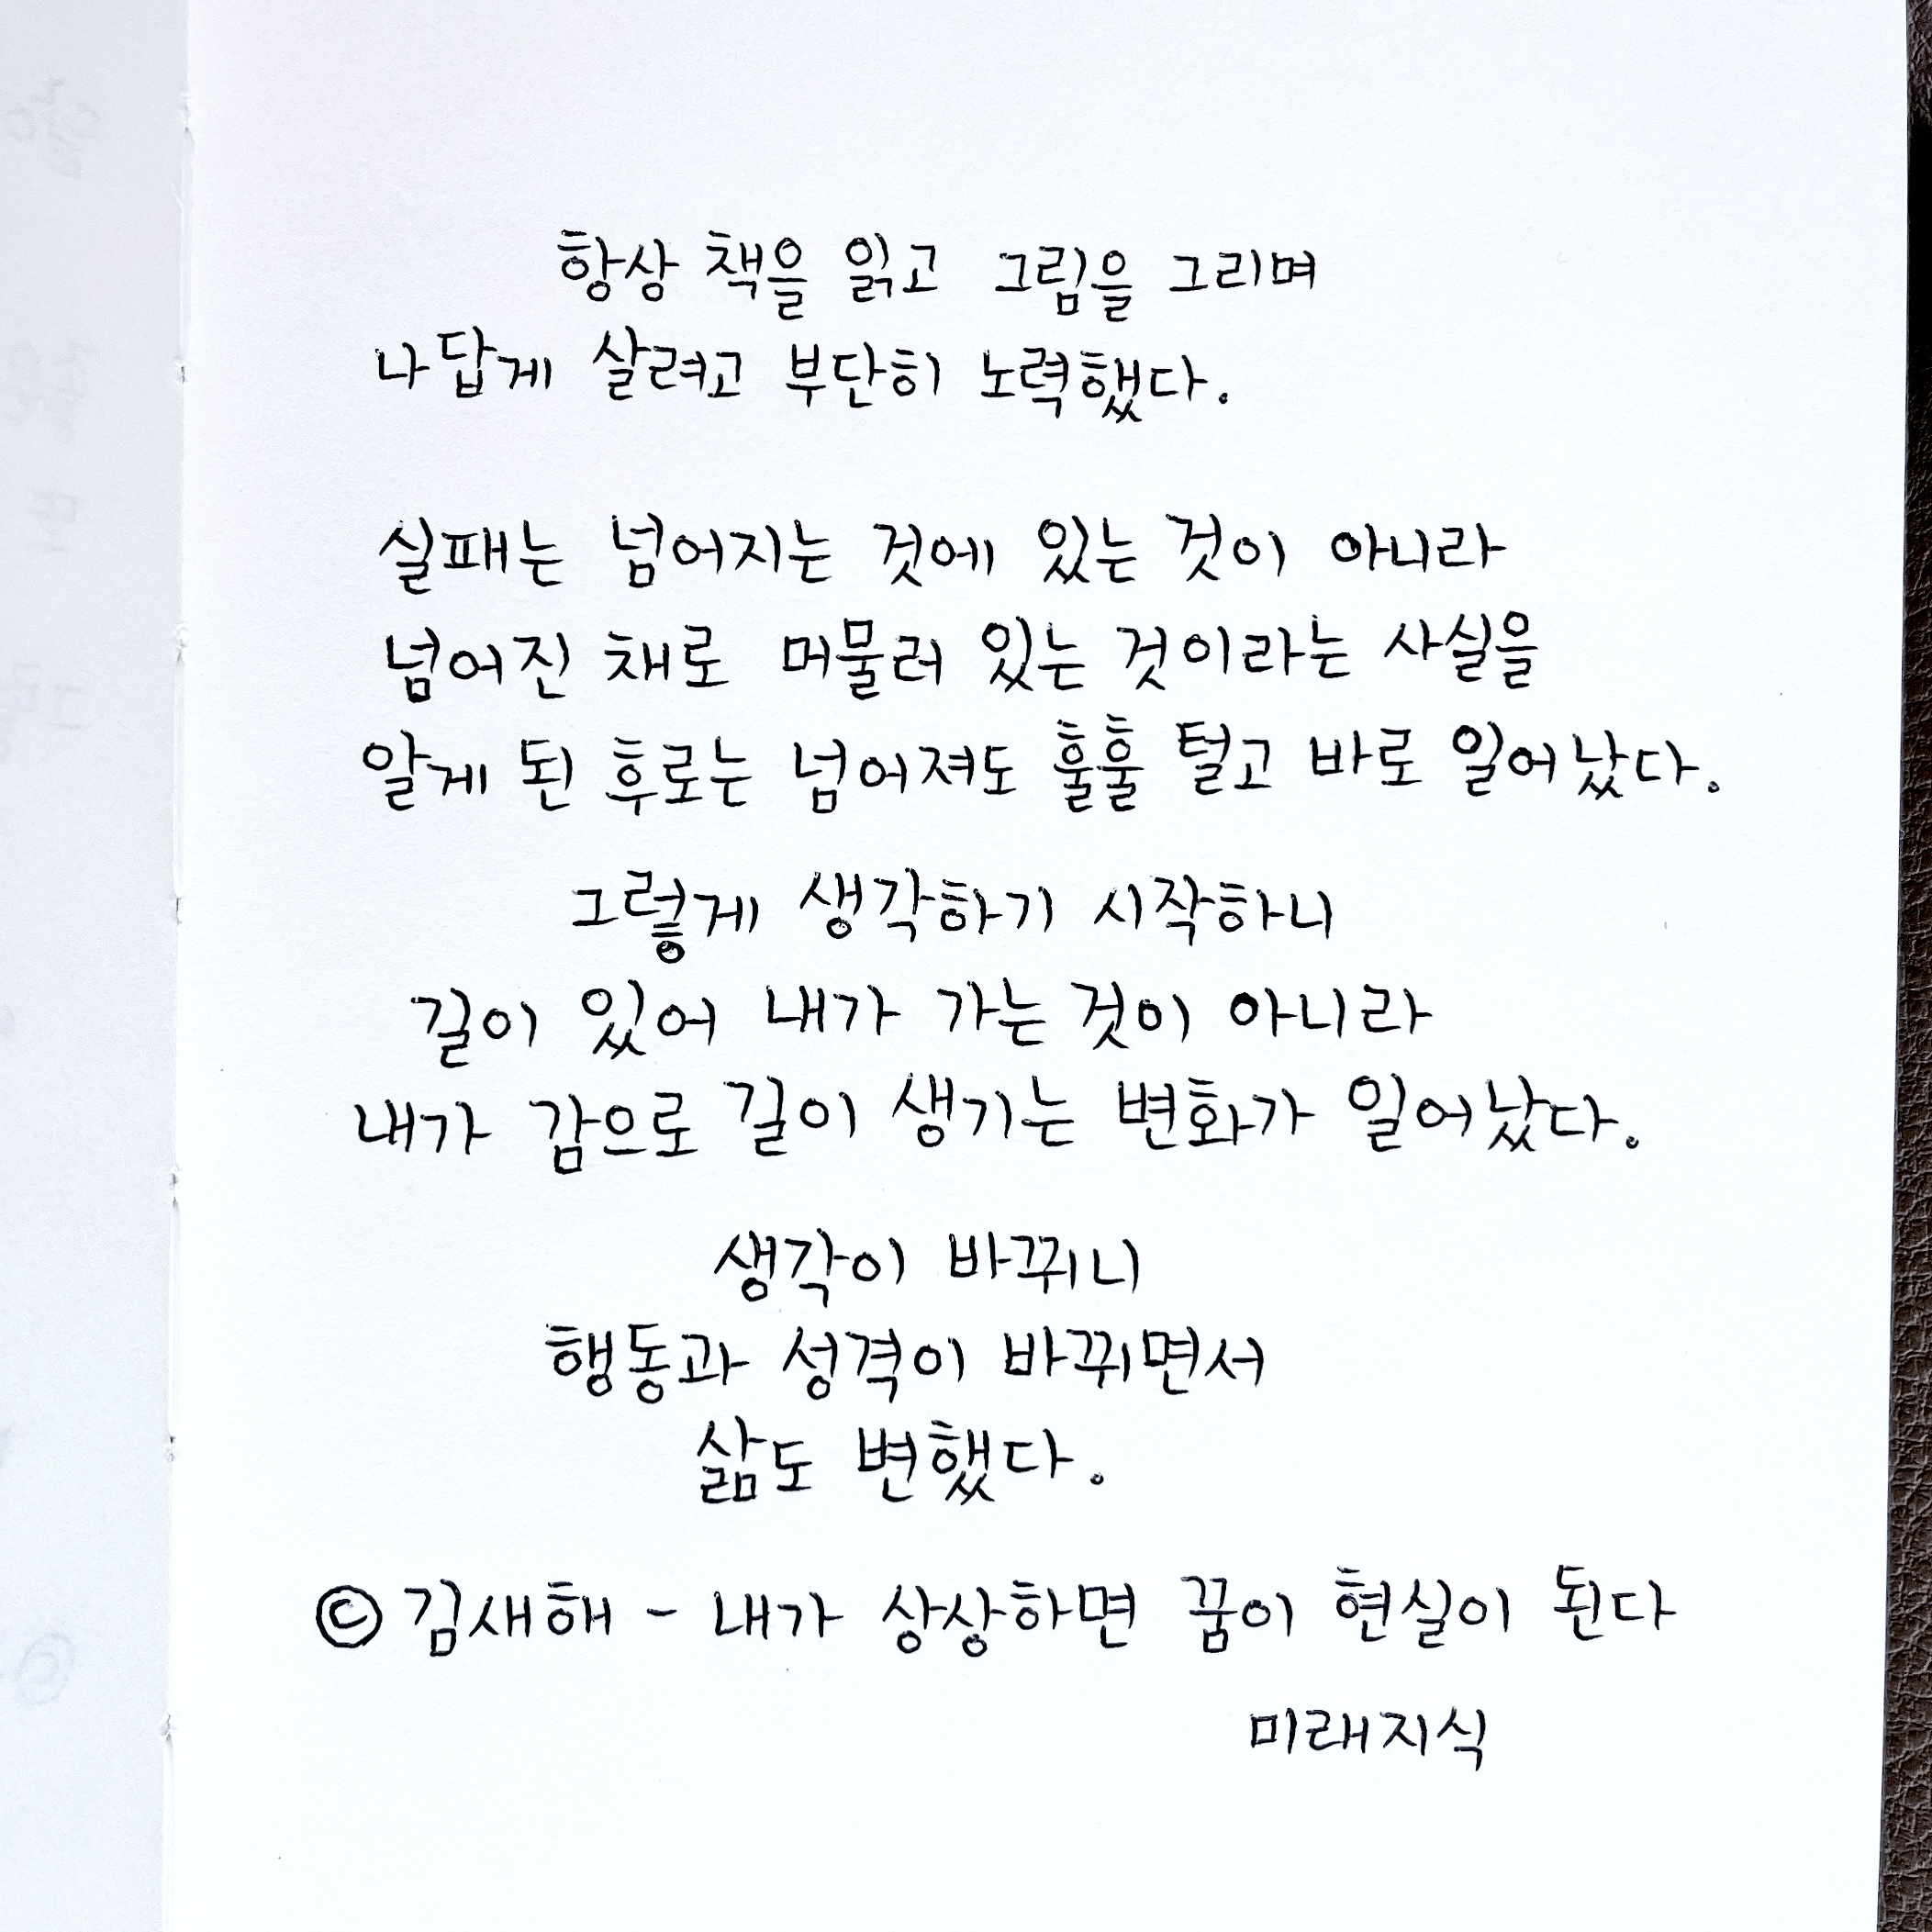 항상 책을 읽고 그림을 그리며
나답게 살려고 부단히 노력했다.
실패는 넘어지는 것에 있는 것이 아니라
넘어진 채로 머물러 있는 것이라는 사실을
알게 된 후로는 넘어져도 훌훌 털고 바로 일어났다.
그렇게 생각하기 시작하니
길이 있어 내가 가는 것이 아니라
내가 감으로 길이 생기는 변화가 일어났다.
생각이 바뀌니
행동과 성격이 바뀌면서
삶도 변했다.
© 김새해 - 내가 상상하면 꿈이 현실이 된다
미래지식